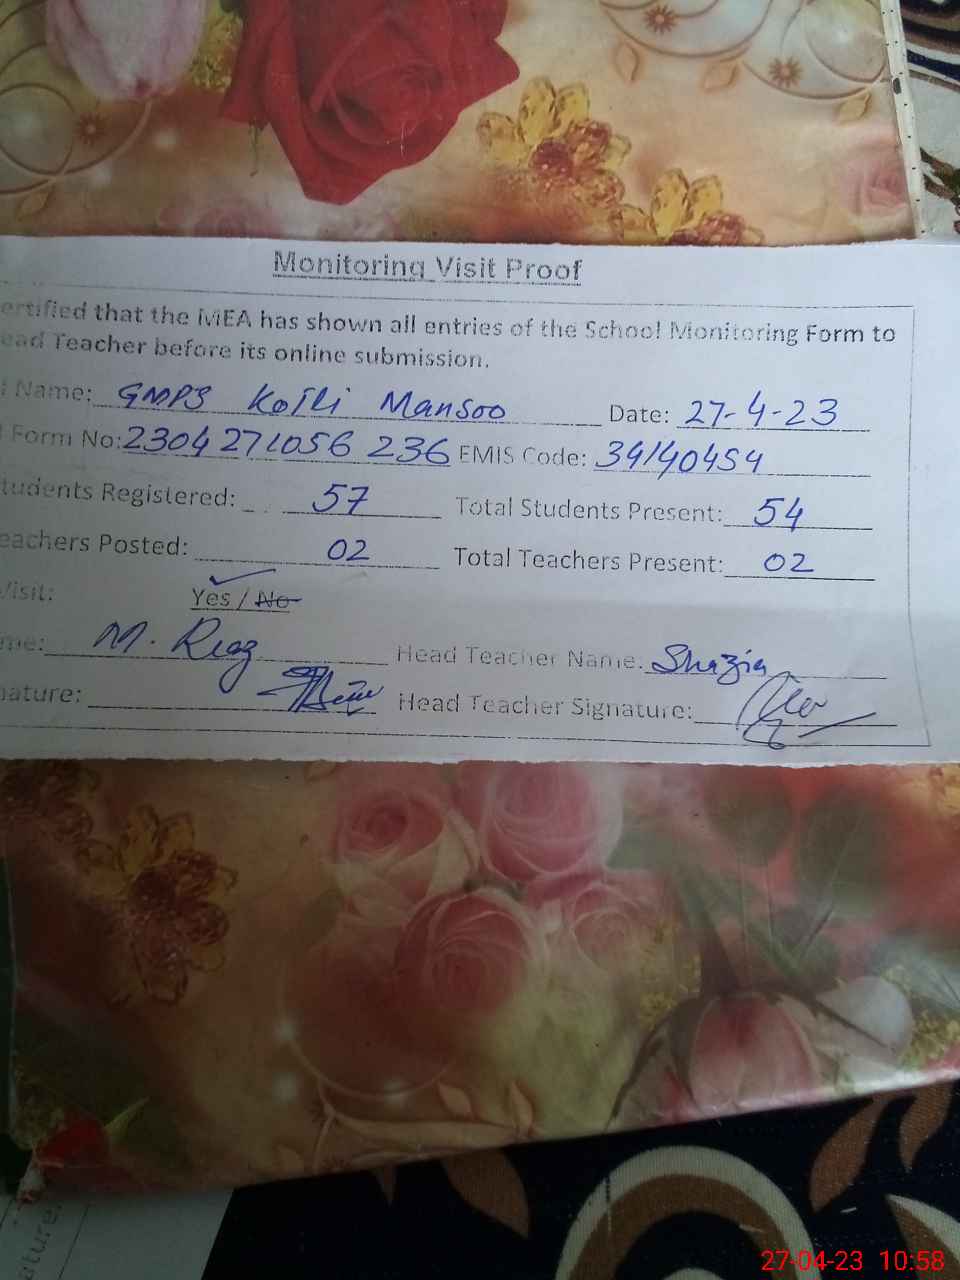 Monitoring Visit Proof
ertified that the MEA has shown all entries of the School Monitoring Form to
ead Teacher before its online submission.
Name: GMPS Kotli Mansoo Date: 27-4-23
Form No: 2304271056 236 EMIS Code: 34140454
tudents Registered: 57 Total Students Present: 54
eachers Posted: 02 Total Teachers Present: 02
Visit: Yes / No
me: M. Riaz Head Teacher Name: Shazia
nature: Head Teacher Signature:
ature:
27-04-23 10:58